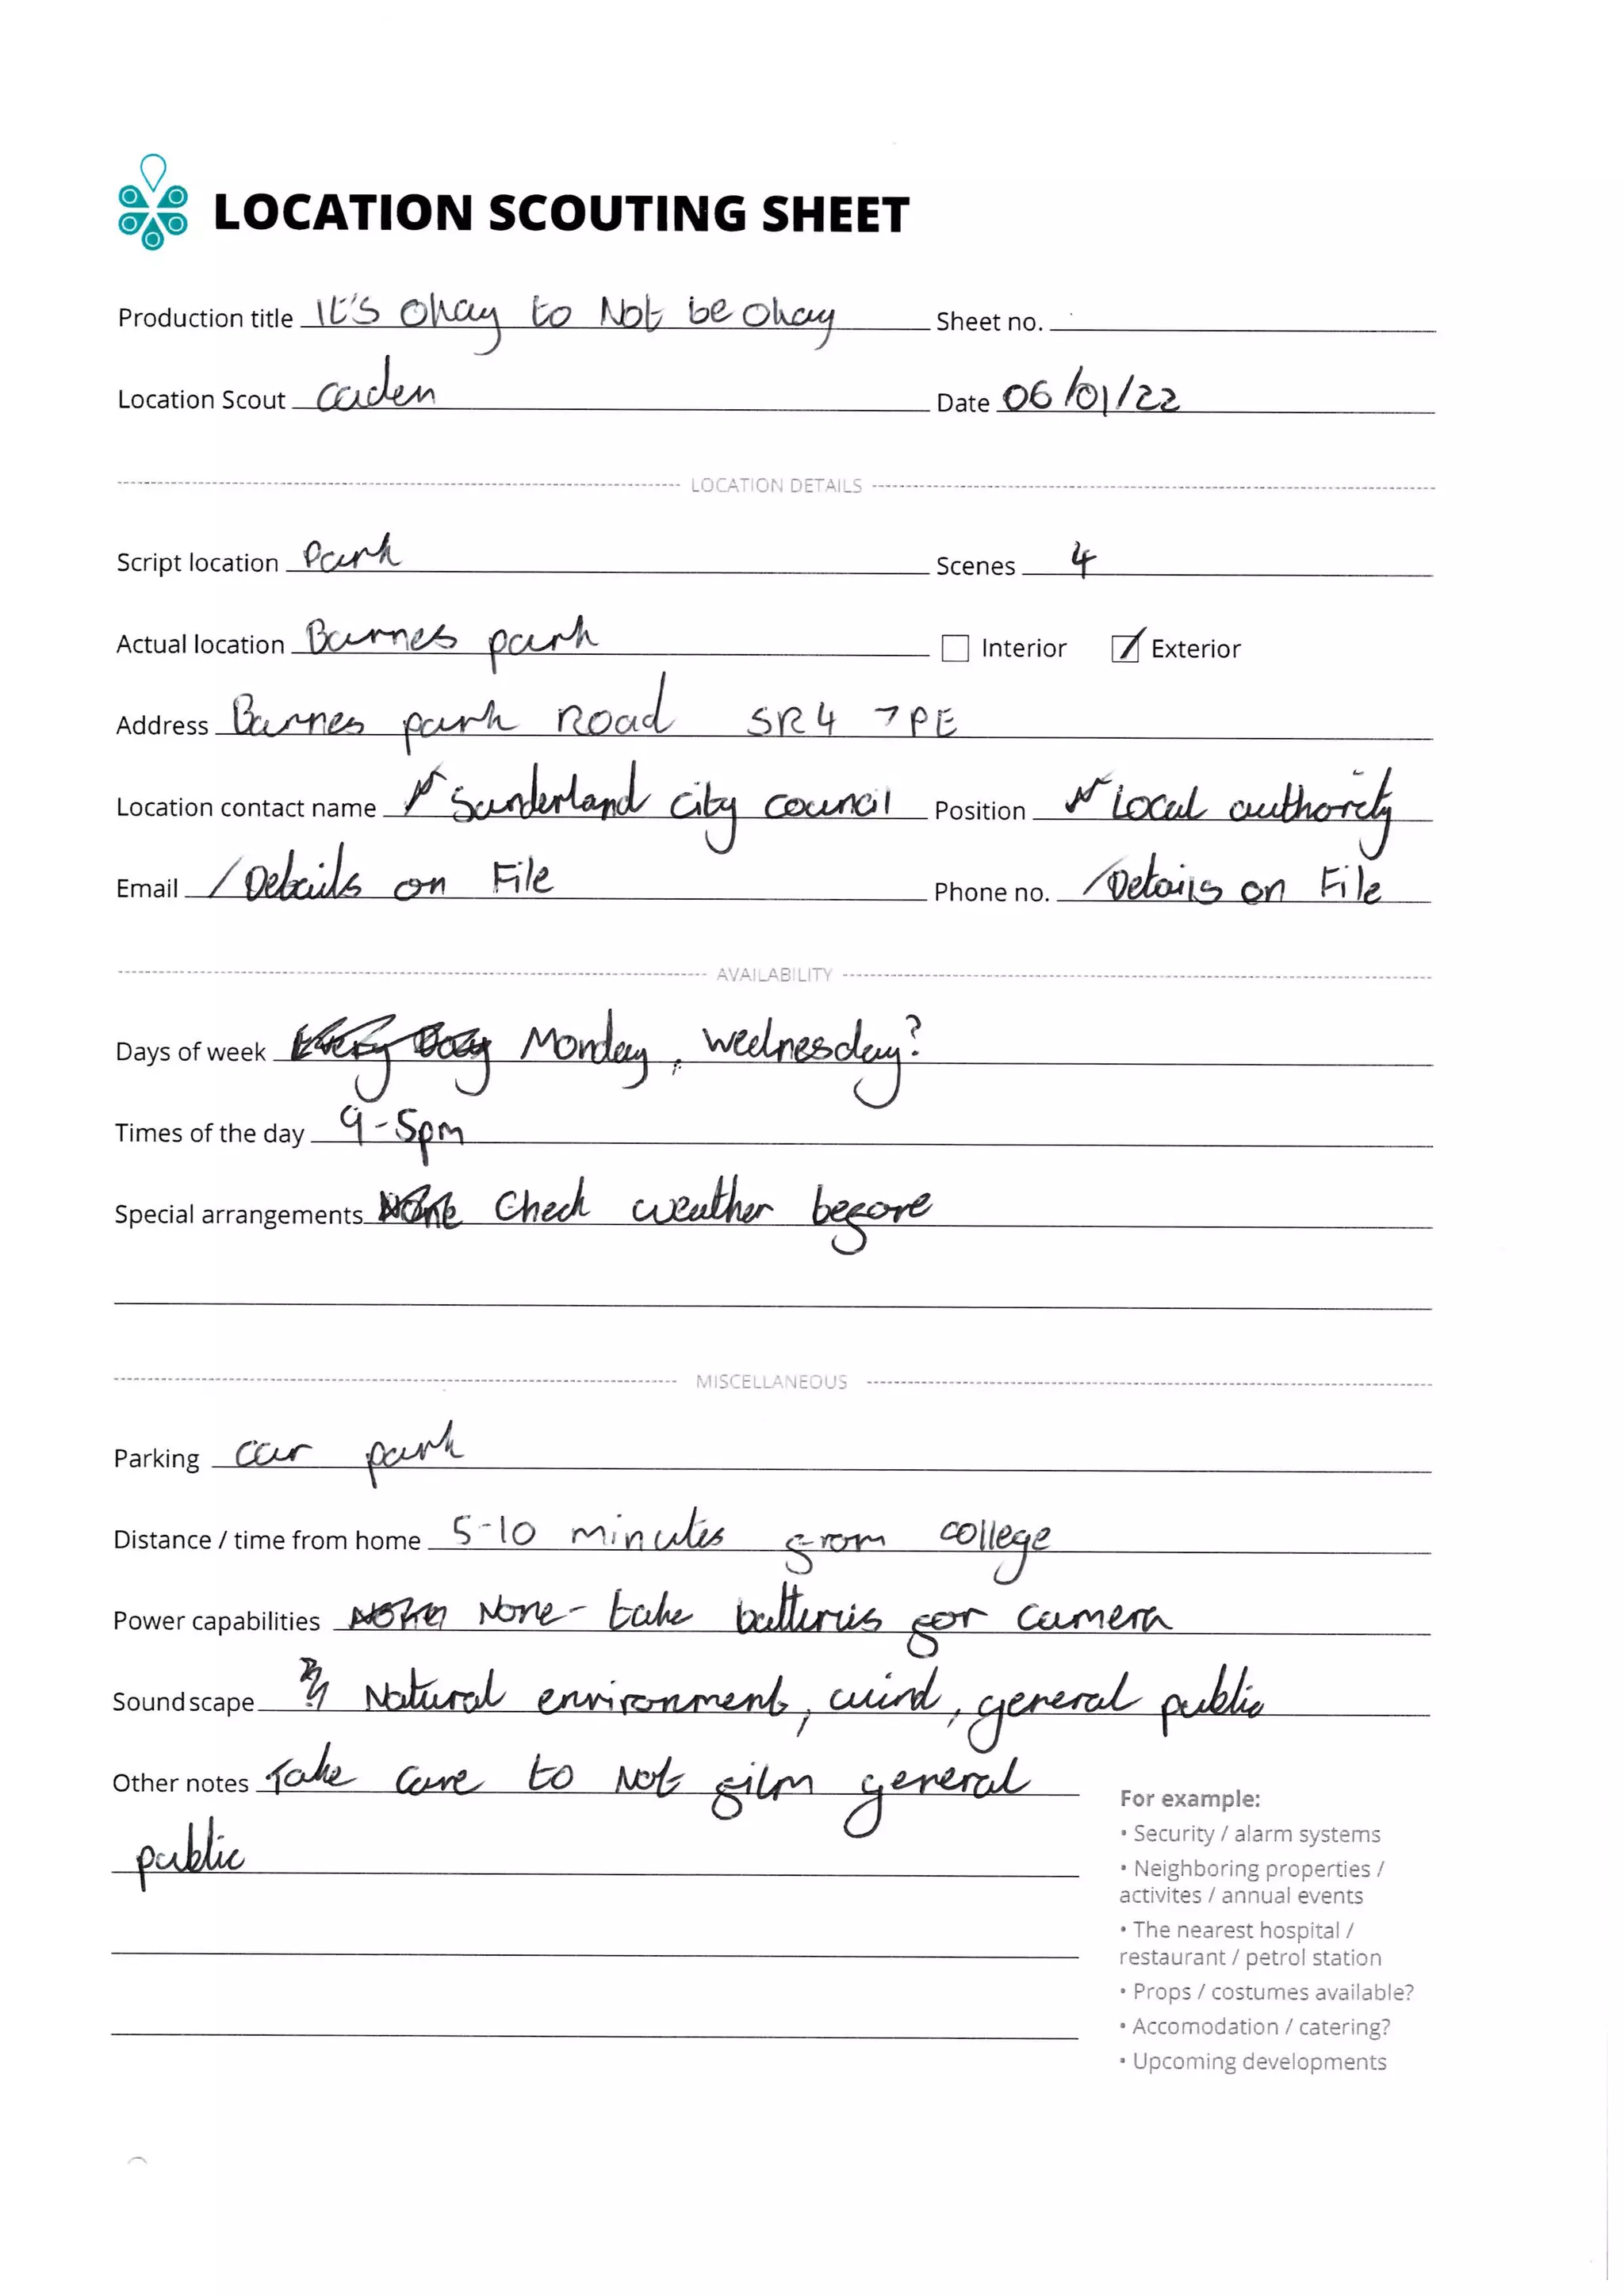 LOCATION SCOUTING SHEET
Production title It's Okay to Not be Okay Sheet no.
Location Scout Caden Date 06/01/22
LOCATION DETAILS
Script location Park Scenes 4
Actual location Barnes park Interior Exterior
Address Barnes park Road SR4 7PE
Location contact name Sunderland city council Position Local authority
Email / Details on File Phone no. / Details on File
AVAILABILITY
Days of week Every Day Monday, Wednesday?
Times of the day 9-5pm
Special arrangements None Check weather before
MISCELLANEOUS
Parking Car park
Distance / time from home 5-10 minutes from college
Power capabilities None - take batteries for camera
Soundscape Natural environment, wind, general public
Other notes Take Care to Not film general
public
For example:
• Security / alarm systems
• Neighboring properties /
activites / annual events
• The nearest hospital /
restaurant / petrol station
• Props / costumes available?
• Accomodation / catering?
• Upcoming developments